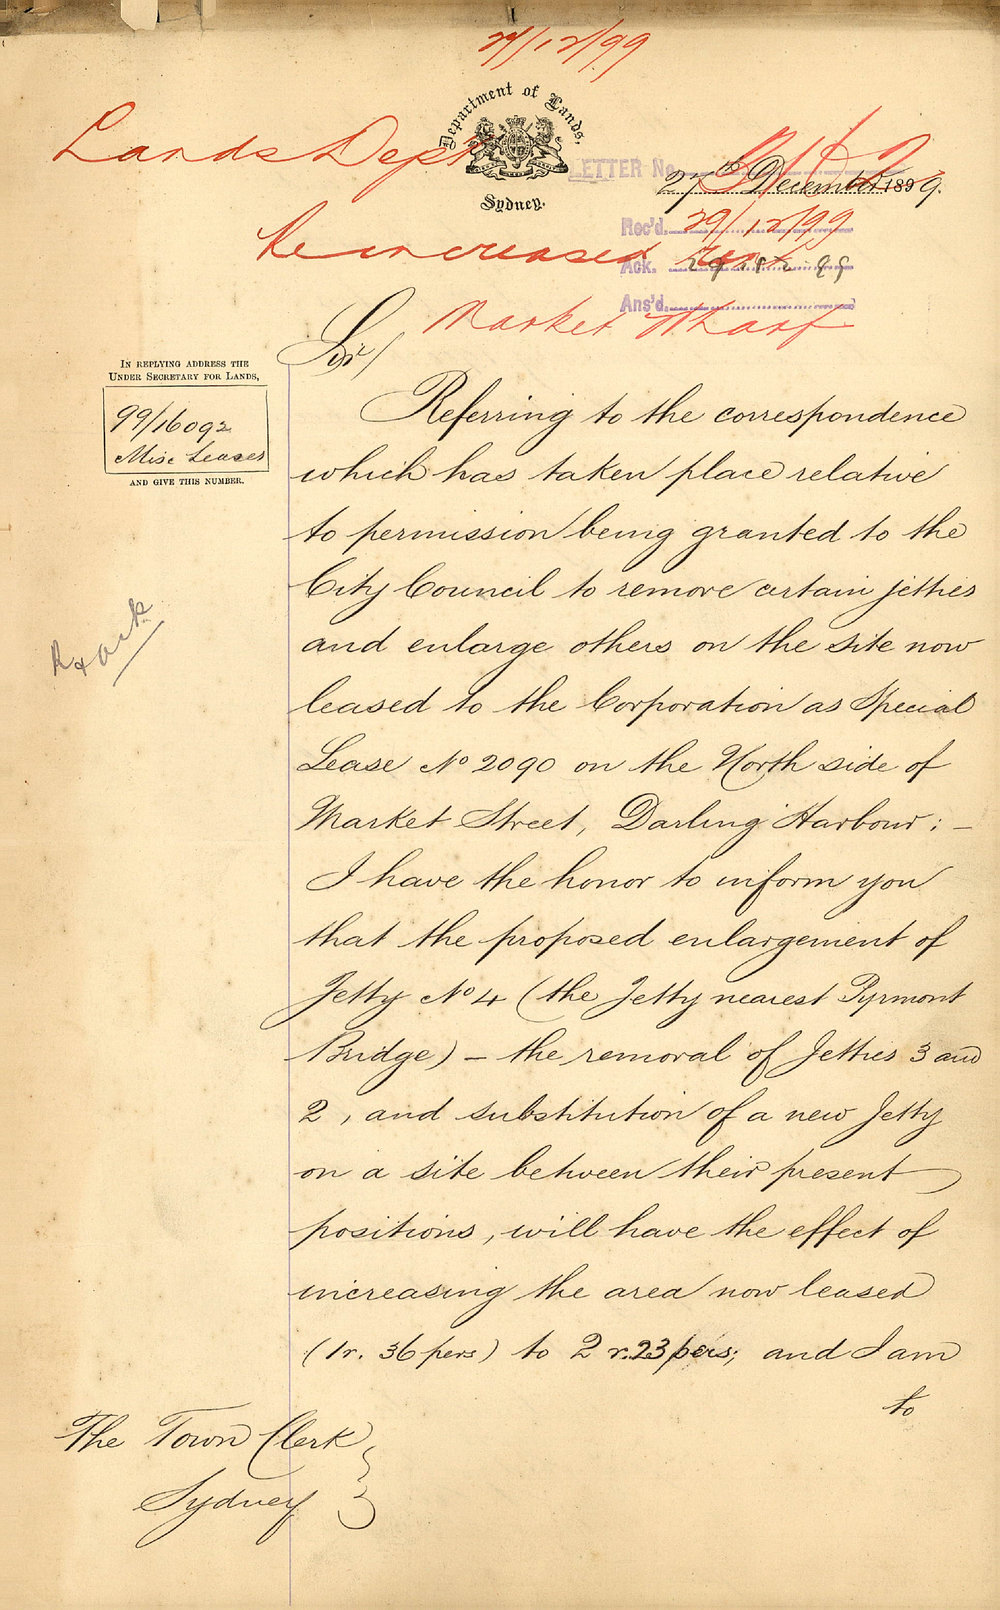 29/12/99
Department of Lands,
Sydney.
Lands Dept
LETTER No.
27th December 1899.
Rec'd. 29/12/99
Re increased rent
Ack. 29 12 99
Ans'd.
Market Wharf
Sir/
IN REPLYING ADDRESS THE
UNDER SECRETARY FOR LANDS,
99/16092
Misc Leases
AND GIVE THIS NUMBER.
Referring to the correspondence
which has taken place relative
to permission being granted to the
City Council to remove certain jetties
and enlarge others on the site now
leased to the Corporation as Special
Lease No 2090 on the North side of
Market Street, Darling Harbour: —
I have the honor to inform you
that the proposed enlargement of
Jetty No 4 (the Jetty nearest Pyrmont
Bridge) — the removal of Jetties 3 and
2, and substitution of a new Jetty
on a site between their present
positions, will have the effect of
increasing the area now leased
(1r. 36 pers) to 2 r. 23 pers; and I am
to
The Town Clerk
Sydney